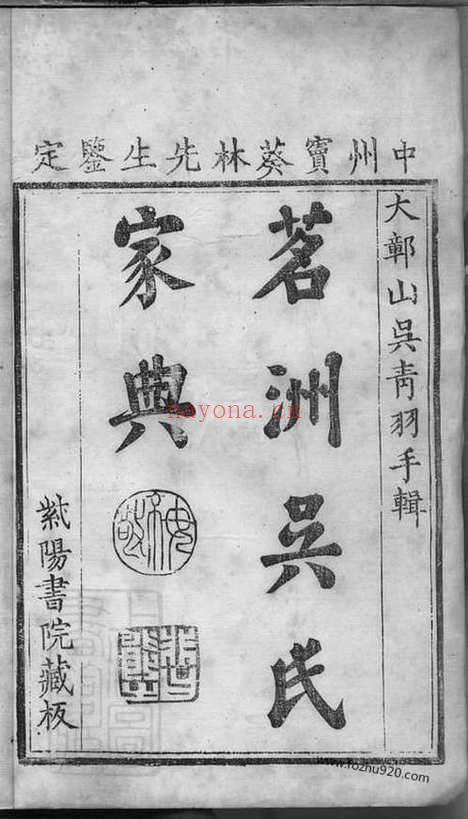 中州竇葵林先生鑒定
大鄣山吳青羽手輯
茗洲吳氏
家典
紫陽書院藏板
nayona.cn
www.fozhu920.com